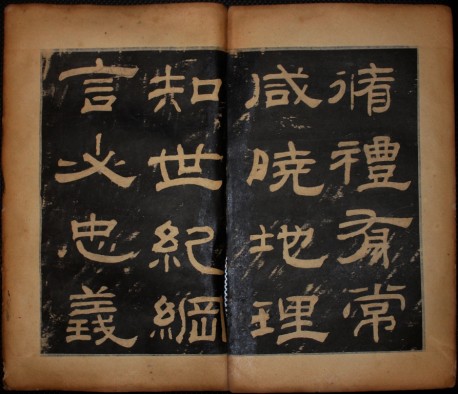 脩禮有常
咸曉地理
知世紀綱
言必忠義